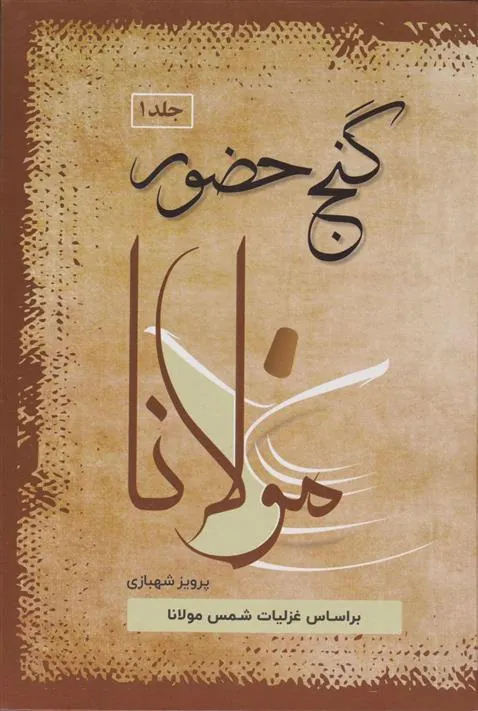 جلد ۱
گنج حضور
مولانا
پرویز شهبازی
براساس غزلیات شمس مولانا